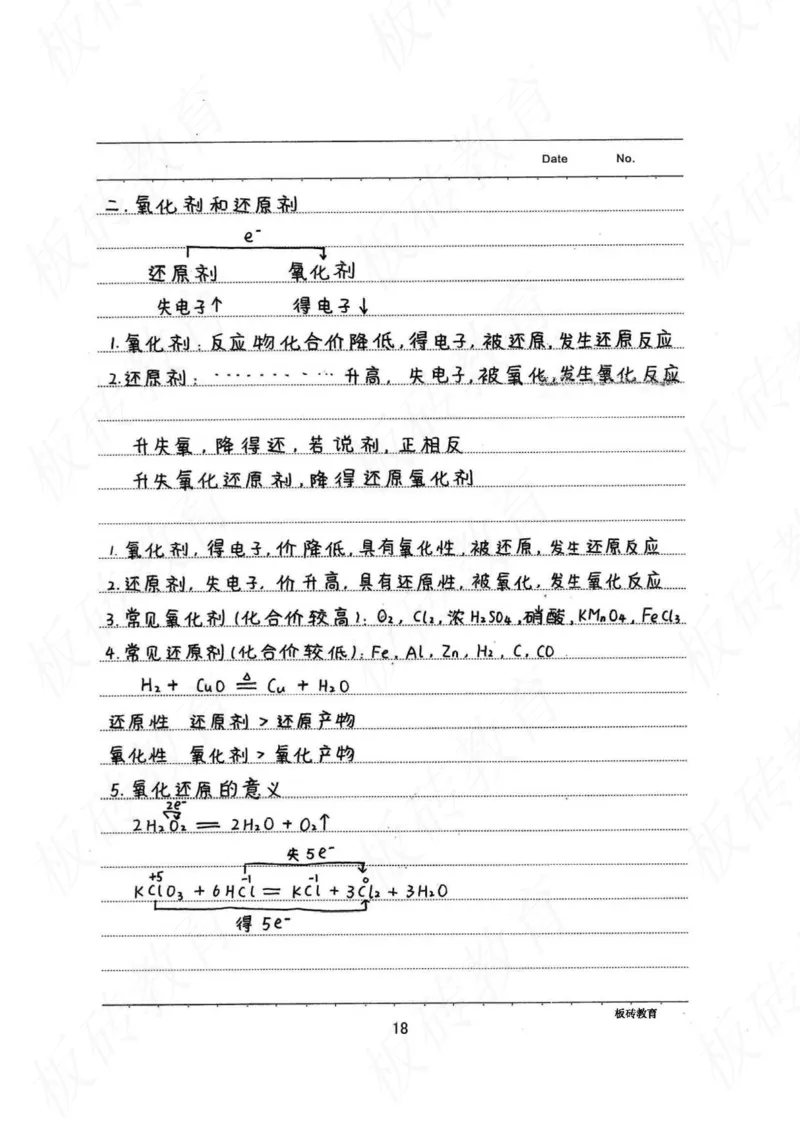 Date No.
二.氧化剂和还原剂
e⁻
还原剂 氧化剂
失电子↑ 得电子↓
1.氧化剂:反应物化合价降低,得电子,被还原,发生还原反应
2.还原剂: ········· 升高, 失电子,被氧化,发生氧化反应
升失氧,降得还,若说剂,正相反
升失氧化还原剂,降得还原氧化剂
1.氧化剂,得电子,价降低,具有氧化性,被还原,发生还原反应
2.还原剂,失电子,价升高,具有还原性,被氧化,发生氧化反应
3.常见氧化剂(化合价较高):O₂,Cl₂,浓H₂SO₄,硝酸,KMnO₄,FeCl₃
4.常见还原剂(化合价较低):Fe,Al,Zn,H₂,C,CO
△
H₂+ CuO = Cu + H₂O
还原性 还原剂>还原产物
氧化性 氧化剂>氧化产物
5.氧化还原的意义
2e⁻
2H₂O₂ = 2H₂O + O₂↑
失5e⁻
+5 -1 -1 0
KClO₃ + 6HCl = KCl + 3Cl₂ + 3H₂O
得 5e⁻
板砖教育
18